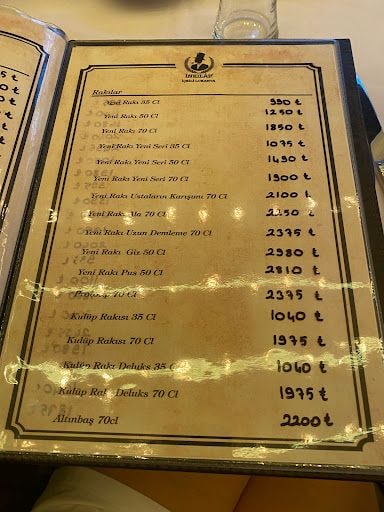 İNKILAP
İÇKİLİ LOKANTA
Rakılar
Yeni Rakı 35 Cl 990 ₺
Yeni Rakı 50 Cl 1250 ₺
Yeni Rakı 70 Cl 1850 ₺
Yeni Rakı Yeni Seri 35 Cl 1075 ₺
Yeni Rakı Yeni Seri 50 Cl 1490 ₺
Yeni Rakı Yeni Seri 70 Cl 1900 ₺
Yeni Rakı Ustaların Karışımı 70 Cl 2100 ₺
Yeni Rakı Ala 70 Cl 2250 ₺
Yeni Rakı Uzun Demleme 70 Cl 2375 ₺
Yeni Rakı Giz 50 Cl 2980 ₺
Yeni Rakı Pus 50 Cl 2810 ₺
70 Cl 2375 ₺
Kulüp Rakısı 35 Cl 1040 ₺
Kulüp Rakısı 70 Cl 1975 ₺
Kulüp Rakı Deluks 35 Cl 1040 ₺
Kulüp Rakı Deluks 70 Cl 1975 ₺
Altınbaş 70cl 2200 ₺